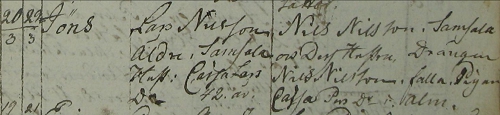 20 22 Jöns Lars Nilsson Nils Nilsson, Samsala
3 3 äldre, Samsala Hustru, Drängen
Hust: Cajsa Lars Nils Nilsson, Calla, Pigan
Dr 42. år. Cajsa Pers Dr i Valm.